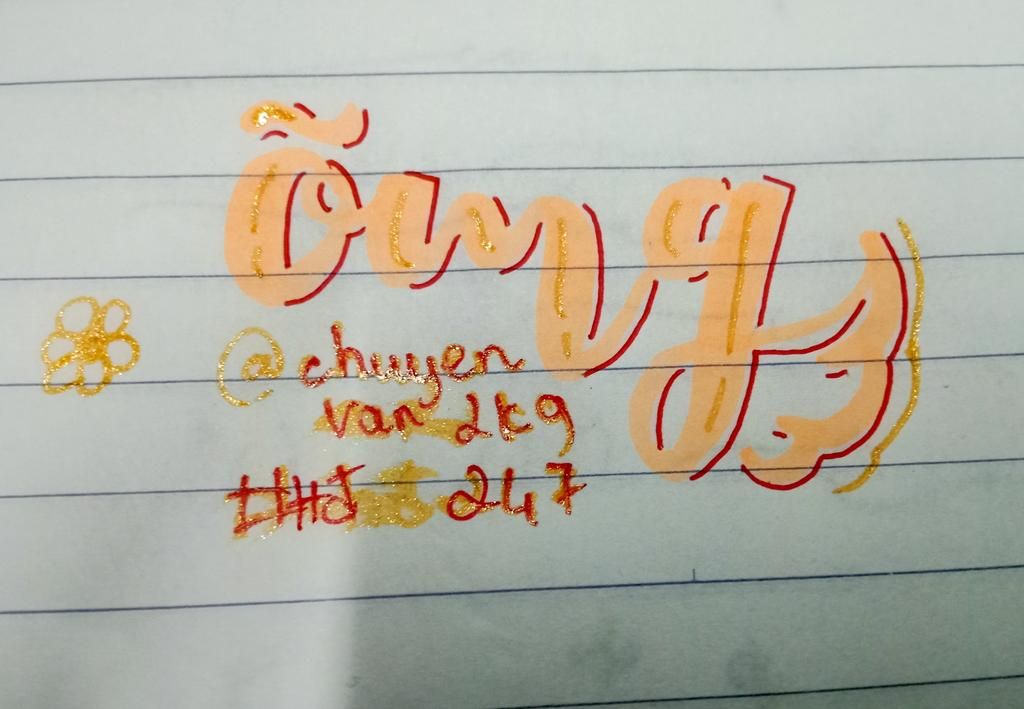 Õmg
@chuyen
van 2k9
#HJ 247